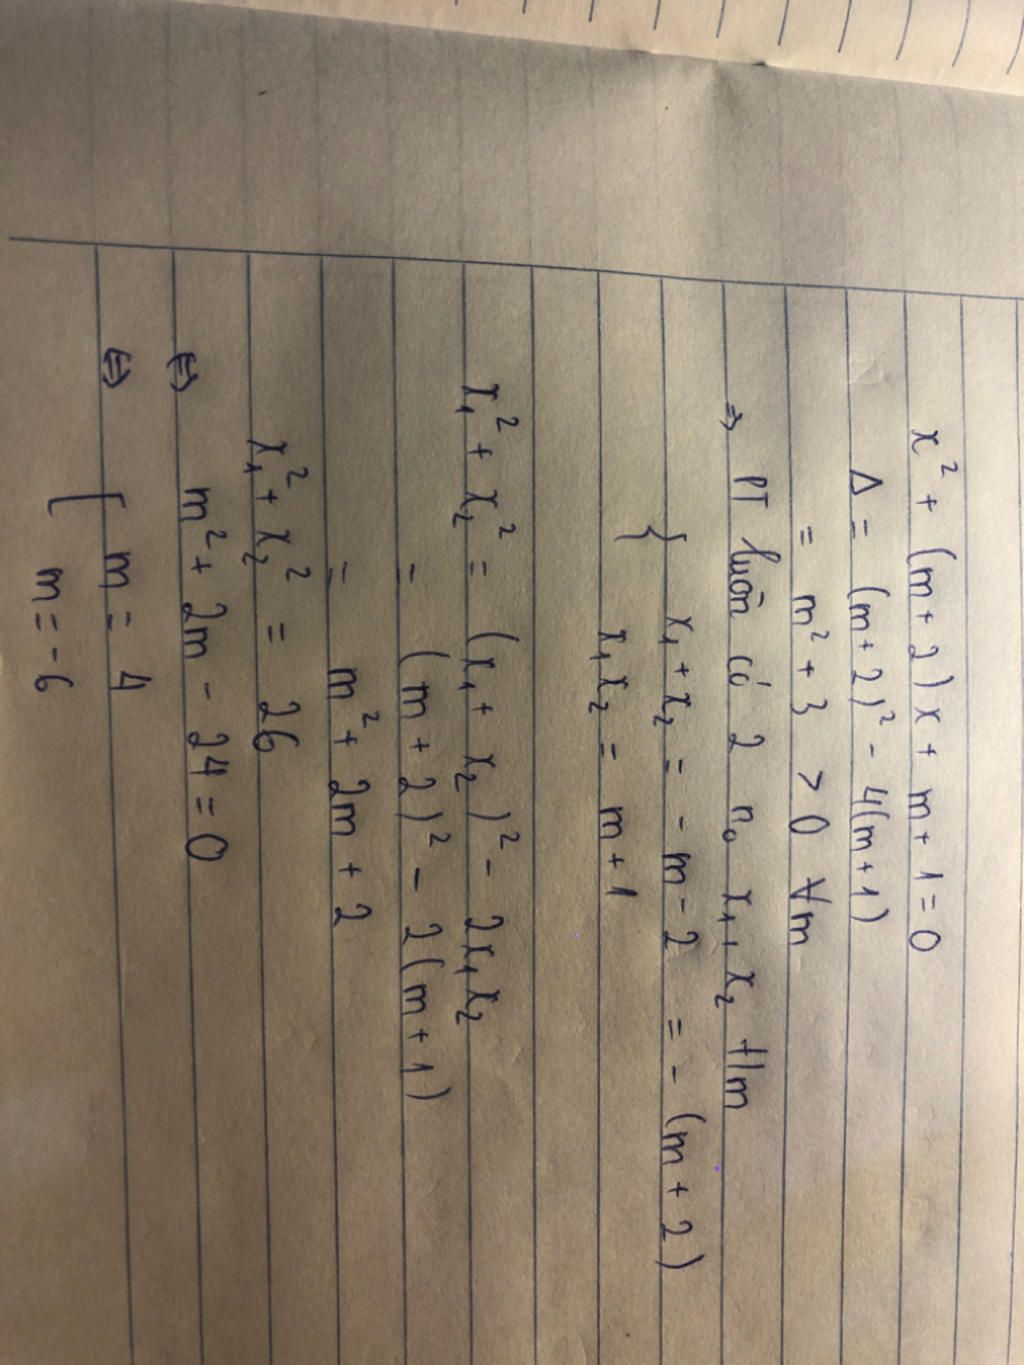 x² + (m+2)x + m+1 = 0
Δ = (m+2)² - 4(m+1)
= m² + 3 > 0 ∀m
⇒ PT luôn có 2 n₀ x₁, x₂ t/m
{ x₁ + x₂ = - m - 2 = - (m+2)
x₁x₂ = m+1
x₁² + x₂² = (x₁ + x₂)² - 2x₁x₂
= (m+2)² - 2(m+1)
= m² + 2m + 2
x₁² + x₂² = 26
⇔ m² + 2m - 24 = 0
⇔ [ m = 4
m = -6